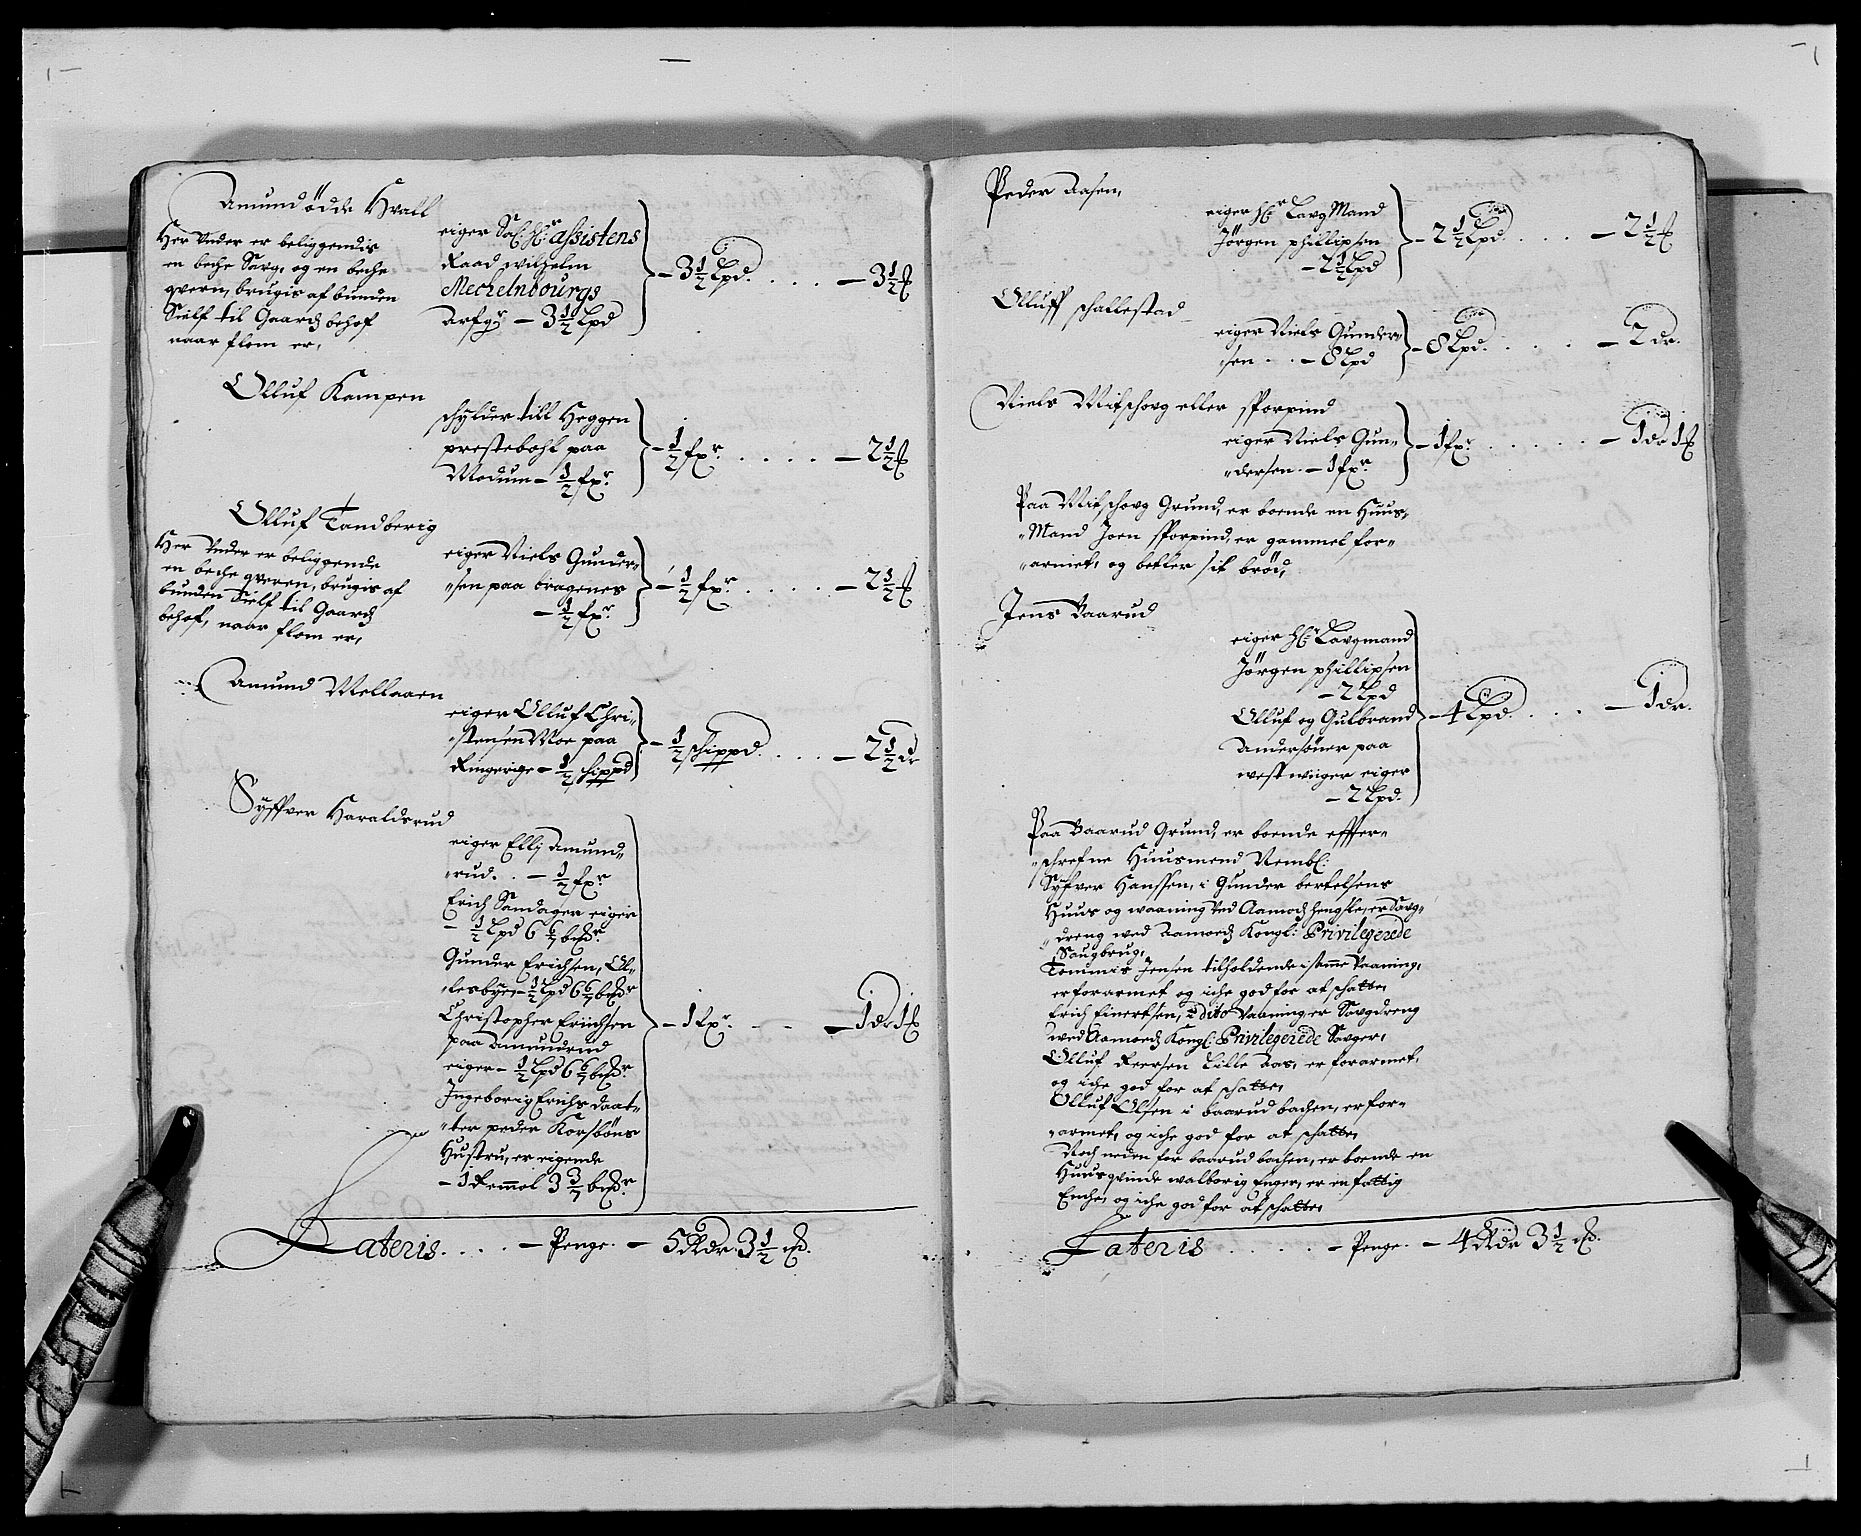 Amund ödde Hvall
Her Under er beliggendis
en beche Saug, og en beche
qvern, brugis af bunden
Sielf til Gaards behof
naar flom er,
eiger Sal: Hr: assistens
Raad wilhelm
Mechelnbourgs
Arfgr — 3 1/2 Lpd
— 3 1/2 Lpd. . . . — 3 1/2
Olluf Kampen
schylder till Heggen
prestebohl paa
Modum — 1/2 fxr.
— 1/2 fxr. . . . . — 2 1/2
Olluf Tandberig
Her Under er beliggende
en beche qveren, brugis af
bunden Sielf til Gaards
behof, naar flom er,
eiger Niels Gunder-
-sen paa bragenes
— 1/2 fxr.
— 1/2 fxr. . . . . — 2 1/2
Amund Mellaaen
eiger Olluf Chri-
-stensen Moe paa
Ringerige — 1/2 schippd
— 1/2 schippd. . . . — 2 1/2 dr
Syffver Haraldsrud
eiger Elli Amund-
-rud. . — 1/2 fxr.
Erich Sandager eiger
— 1/2 Lpd 6 6/7
Gunder Erichsen, Ol-
-lesbye, — 1/2 Lpd 6 6/7
Christopher Erichsen
paa Amundrud
eiger — 1/2 Lpd 6 6/7
Ingeborig Erichs daat-
-ter peder Korsböns
Hustru, er eigende
— 1 Remmol 3 3/7
— 1 fxr. — — — 1 dr 1
Lateris. . . . — Penge. — 5 Rdr. 3 1/2
Peder Aasen,
eiger Hr: Laug Mand
Jörgen phillipsen
— 2 1/2 Lpd
— 2 1/2 Lpd. . . . — 2 1/2
Olluff schallestad
eiger Niels Gunder-
-sen . . — 8 Lpd
— 8 Lpd. . . . — 2 dr.
Niels Mitschoug eller Sporpind
eiger Niels Gun-
-dersen. — 1 fxr.
— 1 fxr. . . . . — 1 dr 1
Paa Mitschoug Grund, er boende en Huus-
-Mand Joen Sporpind, er gammel for-
-armet, og betler sit bröd,
Jens Baarud
eiger Hr: Laugmand
Jörgen phillipsen
— 2 Lpd
Olluf og Gulbrand
Andersöner paa
west wiiger eiger
— 2 Lpd.
— 4 Lpd. . . . — 1 dr.
Paa Baarud Grund, er boende effter-
-schrefne Huusmend Nembl:
Syfver Hanssen, i Gunder bertelsens
Huus og waaning Ved Aamods hengsle, er Saug-
-dreng wed Aamods Kongl: Privilegerede
Saugbrug,
Tommis Jensen tilholdende i samme Vaaning,
er forarmet og iche god for at schatte,
Erich Einertsen, i dito Vaaning, er Saugdreng
wed Aamods Kongl: Privilegerede Sauger,
Olluf Reersen Lille Aas, er forarmet,
og iche god for at schatte,
Olluf Olsen i baarud bachen, er for-
-armet, og iche god for at schatte,
Noch neden for baarud bachen, er boende en
Huusqvinde walborig Enger, er en fattig
Enche, og iche god for at schatte,
Lateris . . . . — Penge. — 4 Rdr 3 1/2